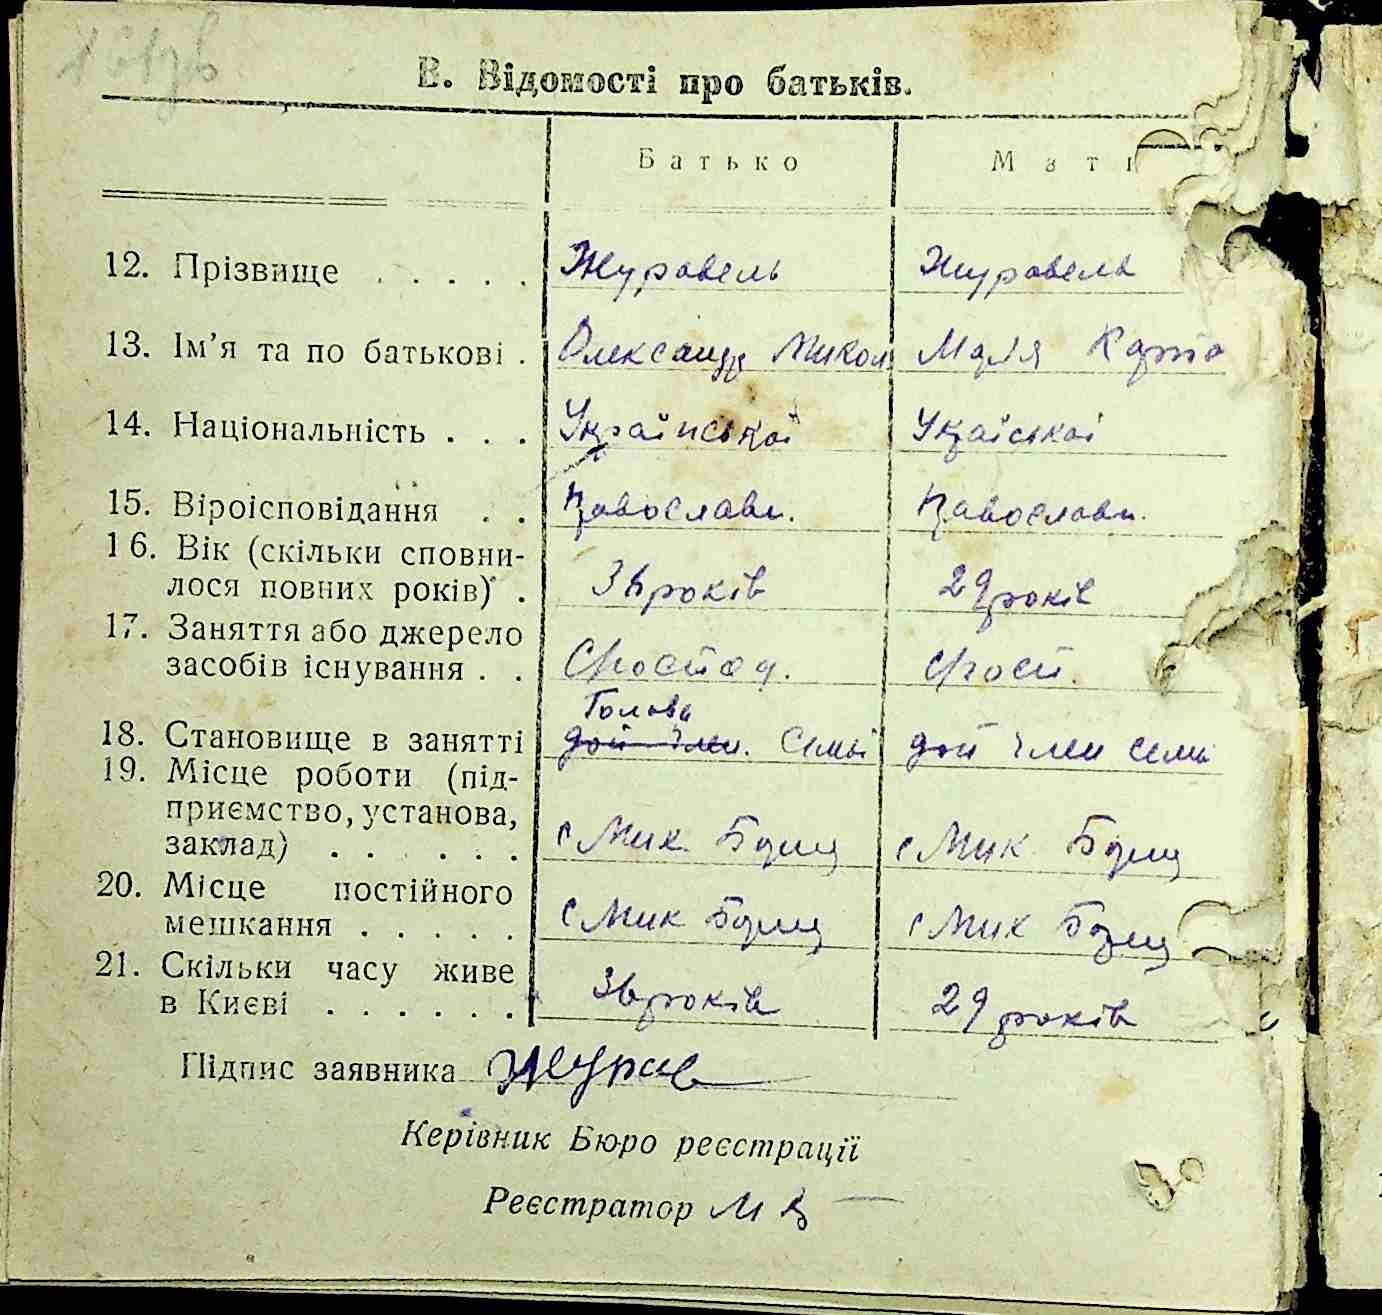 В. Відомості про батьків.
Батько Маті
12. Прізвище . . . . . Журавель Журавель
13. Ім'я та по батькові . Олександр Микол Марія Карпо
14. Національність . . . Української Украіської
15. Віроісповідання . . Православн. Православн.
16. Вік (скільки сповни-
лося повних років) . 36 років 29 років
17. Заняття або джерело
засобів існування . . Господ. Госп.
Голова
18. Становище в занятті доп член. Семьі доп член семьі
19. Місце роботи (під-
приємство, установа,
заклад) . . . . . . с Мик Борщ с Мик Борщ
20. Місце постійного
мешкання . . . . . с Мик Борщ с Мик Борщ
21. Скільки часу живе
в Києві . . . . . . 36 років 29 років
Підпис заявника Журав
Керівник Бюро реєстрації
Реєстратор